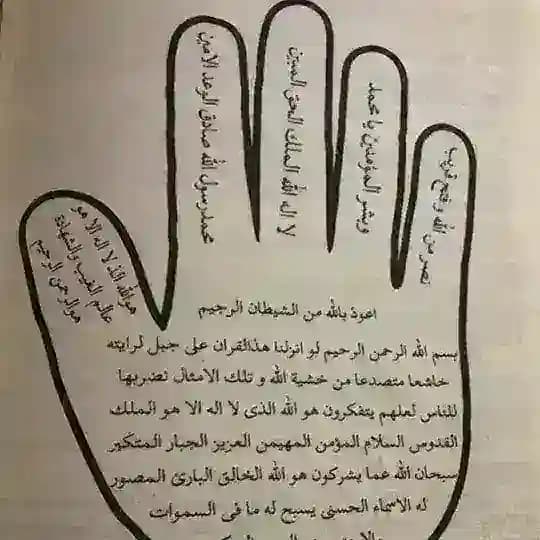 هوالله الذ لا اله الا هو
عالم الغيب والشهادة
هوالرحمن الرحيم
محمد رسول الله صادق الوعد الامين
لا اله الله الملك الحق المبين
وبشر المؤمنين يا محمد
نصر من الله وفتح قريب
اعوذ بالله من الشيطان الرجيم
بسم الله الرحمن الرحيم لو انزلنا هذالقران على جبل لرايته
خاشعا متصدعا من خشية الله و تلك الامثال نضربها
للناس لعلهم يتفكرون هو الله الذى لا اله الا هو الملك
القدوس السلام المؤمن المهيمن العزيز الجبار المتكبر
سبحان الله عما يشركون هو الله الخالق البارئ المصور
له الاسماء الحسنى يسبح له ما فى السموات